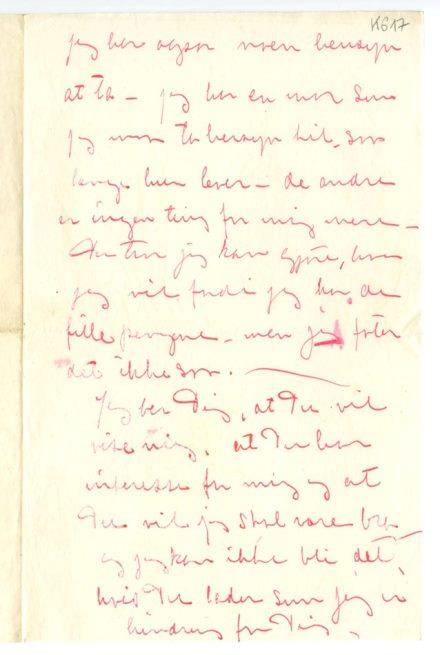 K617
jeg har også noen hensyn
at ta – jeg har en mor som
jeg må ta hensyn til, så
længe hun lever – de andre
er ingen ting for mig mere –
Du tror jeg kan gjøre, hva
jeg vil fordi jeg har de
fille pengene – men jeg føler
det ikke så.
Jeg ber Dig, at Du vil
vise mig, at Du har
interesse for mig og at
Du vil jeg skal være bra
og jeg kan ikke bli det,
hvis Du lader som jeg er
hindring for Dig,